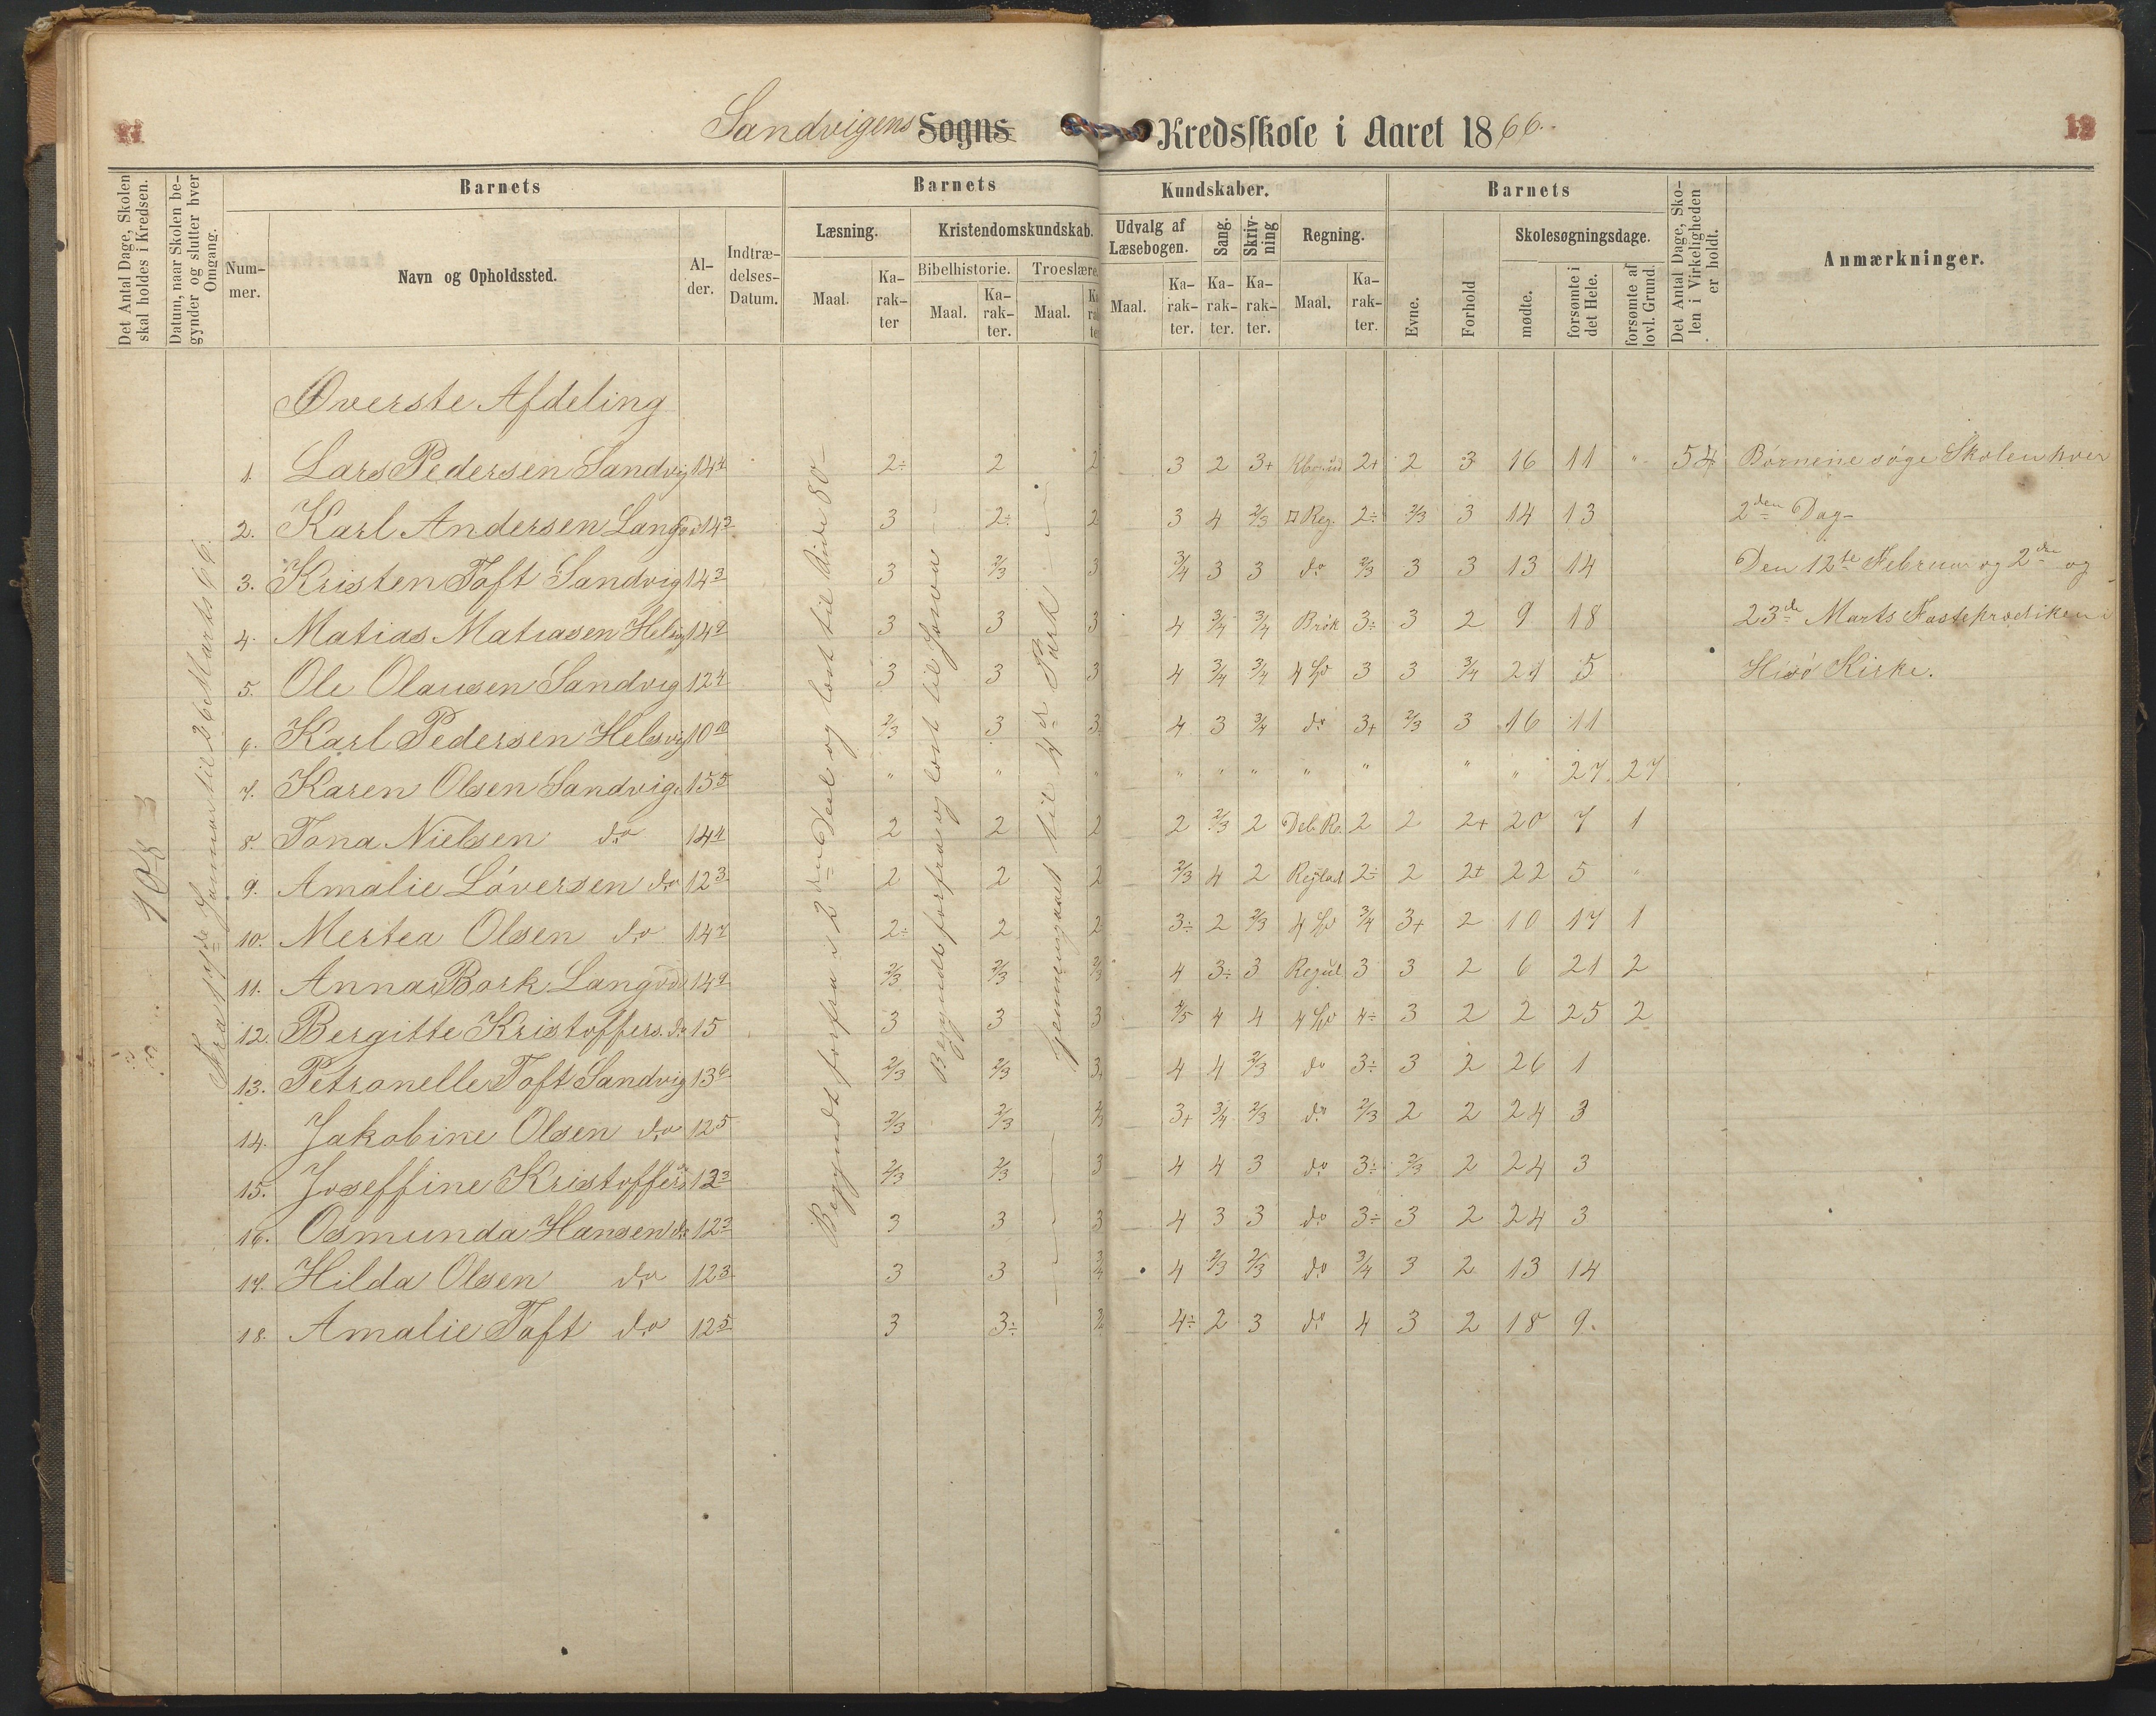 Sandvigens Sogns Kredsskole i Aaret 1866.
12
Det Antal Dage, Skolen skal holdes i Kredsen.
Datum, naar Skolen begynder og slutter hver Omgang.
Barnets
Nummer.
Navn og Opholdssted.
Alder.
Indtrædelses-Datum.
Barnets Kundskaber.
Læsning.
Maal.
Karakter
Kristendomskundskab.
Bibelhistorie.
Maal.
Karakter.
Troeslære.
Maal.
Karakter
Udvalg af Læsebogen.
Maal.
Karakter.
Sang.
Karakter.
Skrivning
Karakter.
Regning.
Maal.
Karakter.
Barnets
Evne.
Forhold
Skolesøgningsdage.
mødte.
forsømte i det Hele.
forsømte af lovl. Grund.
Det Antal Dage, Skolen i Virkeligheden er holdt.
Anmærkninger.
108
Fra 17de Januar til 26 Marts 66.
Begyndt forfra i 2den Deel og læst til Side 80
Begyndt forfra og læst til Josva
Gjennemgaaet til 4de Part
Øverste Afdeling
1. Lars Pedersen Sandvig 14 4 2÷ 2 2 3 2 3+ 2+ 2 3 16 11 " 54 Børnene søge Skolen hver
2. Karl Andersen Langvd 14 3 3 2÷ 2 3 4 2/3 ¤ Reg. 2÷ 2/3 3 14 13 2den Dag
3. Kristen Toft Sandvig 14 3 3 2/3 3 3/4 3 3 do 2/3 3 3 13 14 Den 12te Februar og 2den og
4. Matias Matiasen Helsvig 14 9 3 3 3 4 3/4 3/4 Brøk 3÷ 3 2 9 18 23de Marts Fasteprædiken i
5. Ole Olausen Sandvig 12 4 3 3 3 4 3/4 3/4 3 3 3/4 21 5 Hisø Kirke.
6. Karl Pedersen Helsvig 10 10 2/3 3 3 4 3 3/4 do 3+ 2/3 3 16 11
7. Karen Olsen Sandvig 15 5 " " " " " " " " " " 27 27
8. Tona Nielsen do 14 4 2 2 2 2 2/3 2 2 2 2+ 20 7 1
9. Amalie Løversen do 12 3 2 2 2 2/3 4 2 2÷ 2 2+ 22 5 "
10. Mertea Olsen do 14 7 2÷ 2 2 3÷ 2 2/3 3/4 3+ 2 10 17 1
11. Anna Bork Langvd 14 9 2/3 2/3 2/3 4 3÷ 3 Regul 3 3 2 6 21 2
12. Bergitte Kristoffers. do 15 3 3 3 4/5 4 4 4÷ 3 2 2 25 2
13. Petronelle Toft Sandvig 13 6 2/3 2/3 3+ 4 4 2/3 do 3÷ 3 2 26 1
14. Jakobine Olsen do 12 5 2/3 2/3 2/3 3+ 3/4 2/3 do 2/3 2 2 24 3
15. Joseffine Kristoffers do 12 3 2/3 2/3 3 4 4 3 do 3÷ 2/3 2 24 3
16. Osmunda Hansen do 12 3 3 3 3 4 3 3 do 3÷ 3 2 24 3
17. Hilda Olsen do 12 3 3 3 3/4 4 2/3 2/3 do 3/4 3 2 13 14
18. Amalie Toft do 12 5 3 3÷ 3/4 4÷ 2 3 do 4 3 2 18 9.